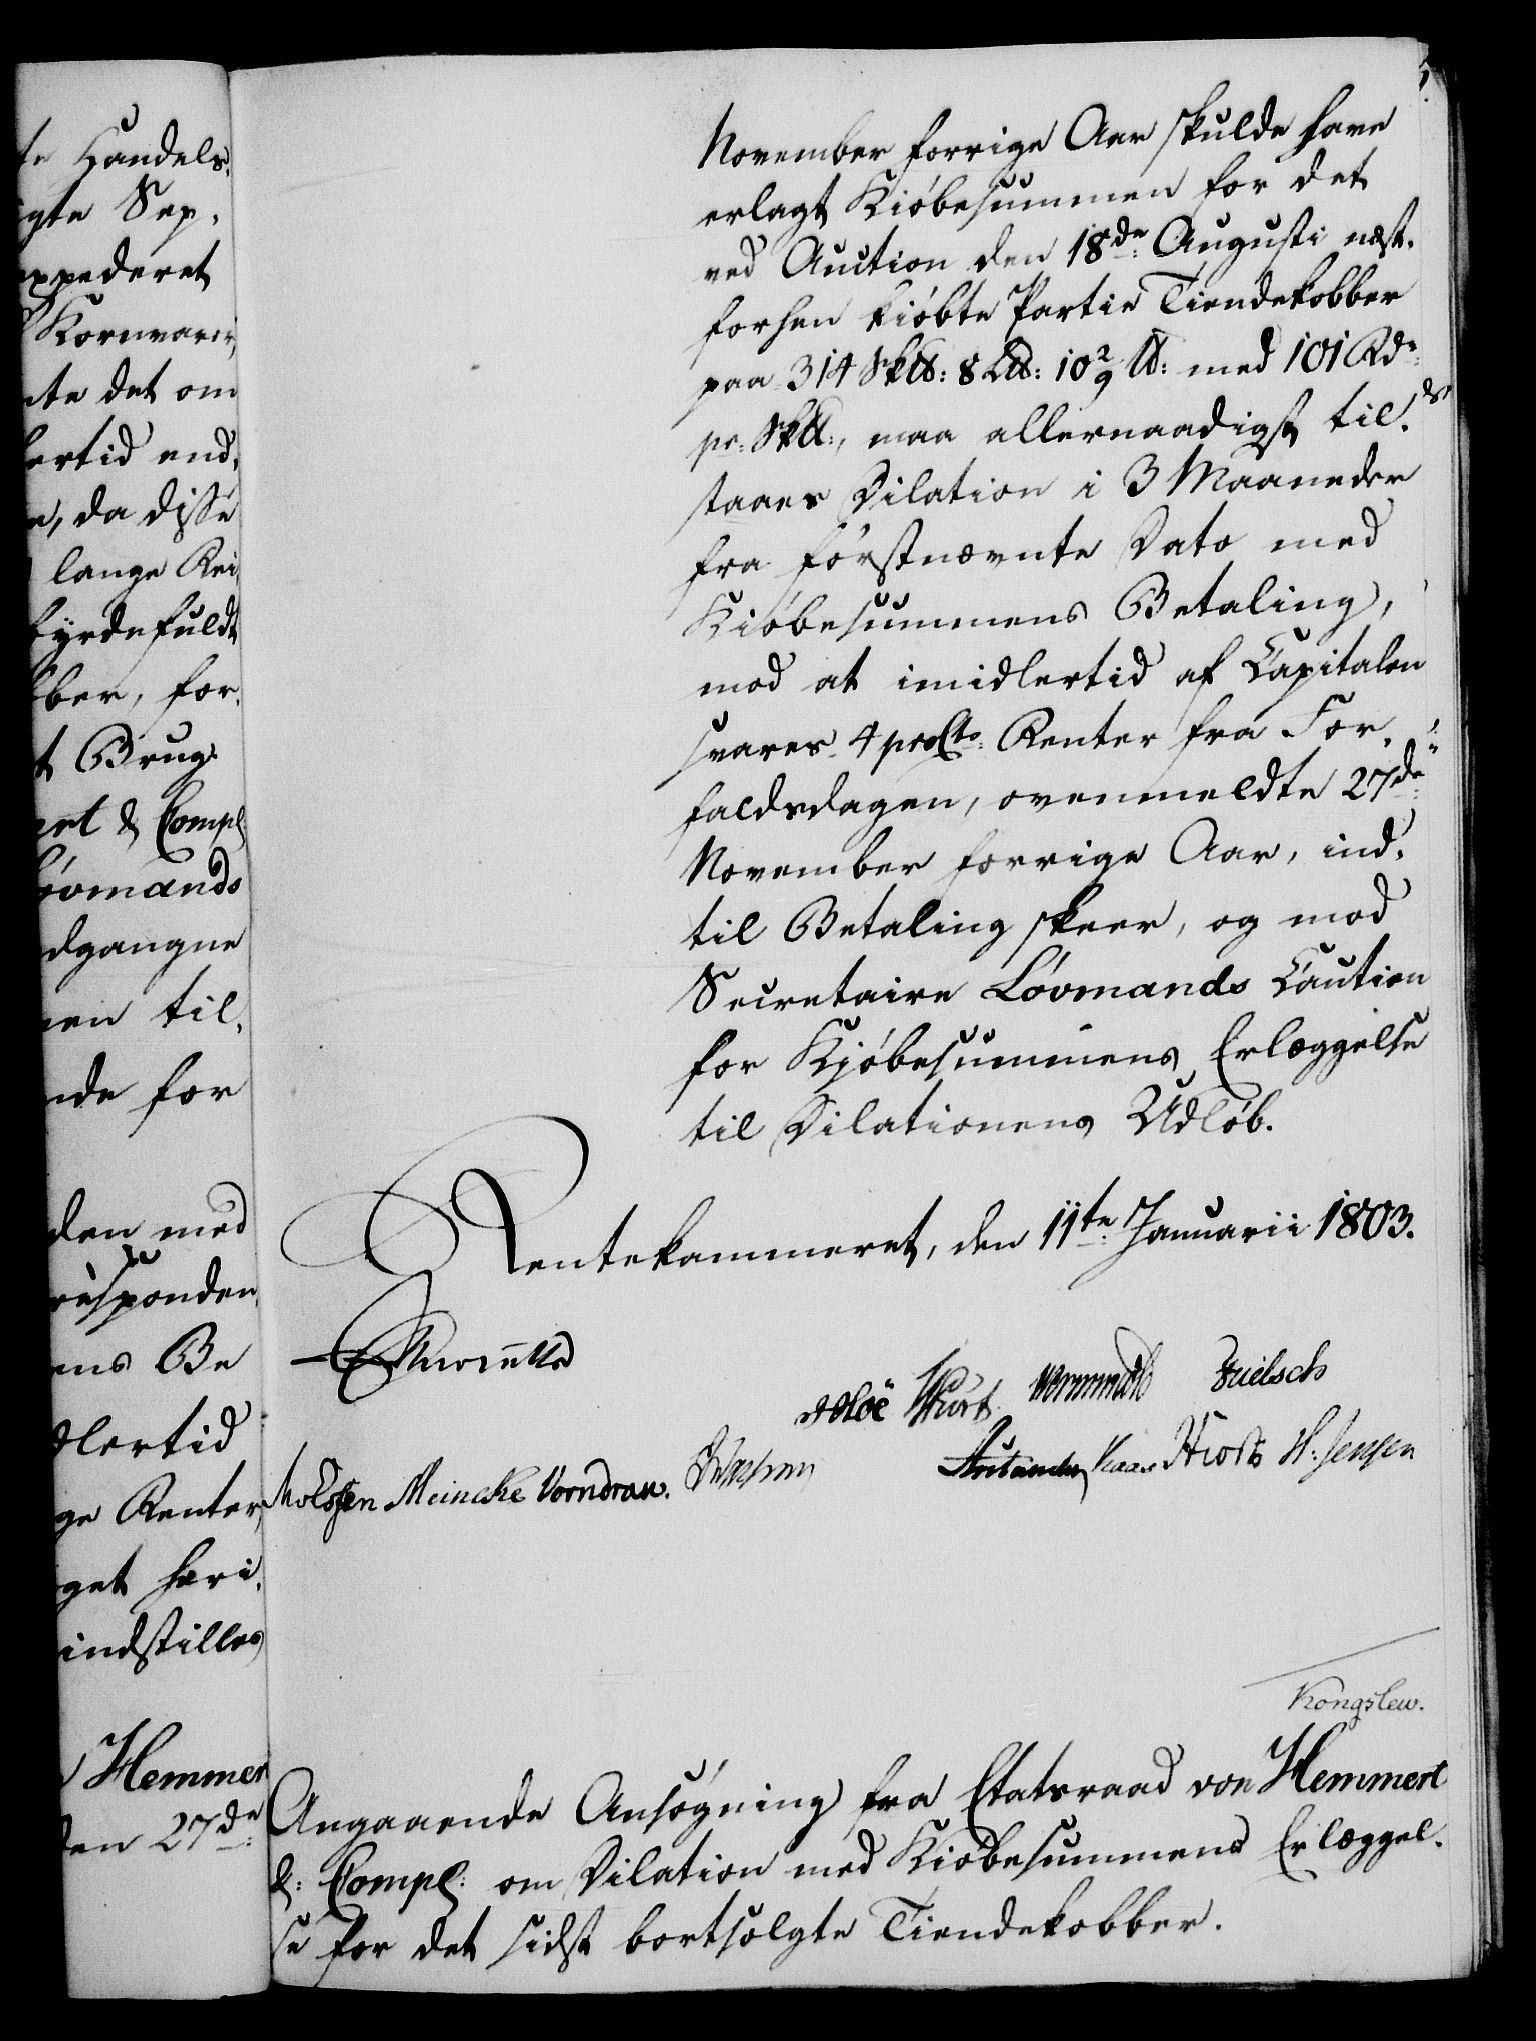 te Handels,
igte Sep,
expederet
Kornvarer,
nte det om
lertid end,
e, da disse
lange Rei,
byrdefuldt
ber, for,
t Brug
ert & Comp
Lövmands
dgangne
nen til,
nde for
den med
responden,
ens Be
dlertid
ge Renter,
get heri,
indstilles
Hemmer
den 27de
November forrige Aar skulde have
erlagt Kiöbesummen for det
ved Auction den 18de: Augusti næst,
forhen kiöbte Partie Tiendekobber
paa 314 Sk℔: 8 L℔: 10 2/9 ℔: med 101 Rdr
pr: Sk℔:, maa allernaadigst til,
staaes Dilation i 3 Maaneder
fra förstnævnte Dato med
Kiöbesummens Betaling,
mod at imidlertid af Capitalen
svares 4 proCto: Renter fra For,
faldsdagen, ovenmeldte 27de:
November forrige Aar, ind,
til Betaling skeer, og mod
Secretaire Lövmands Caution
for Kjöbesummens Erlæggelse
til Dilationens Udlöb.
Rentekammeret, den 11te: Januarii 1803.
Wormskiold
Molssen Meincke Vorndran.
Hiort H: Jensen
Kongslew.
Angaaende Ansögning fra Etatsraad von Hemmert
&: Comp: om Dilation med Kiöbesummens Erlæggel,
se for det sidst bortsolgte Tiendekobber.